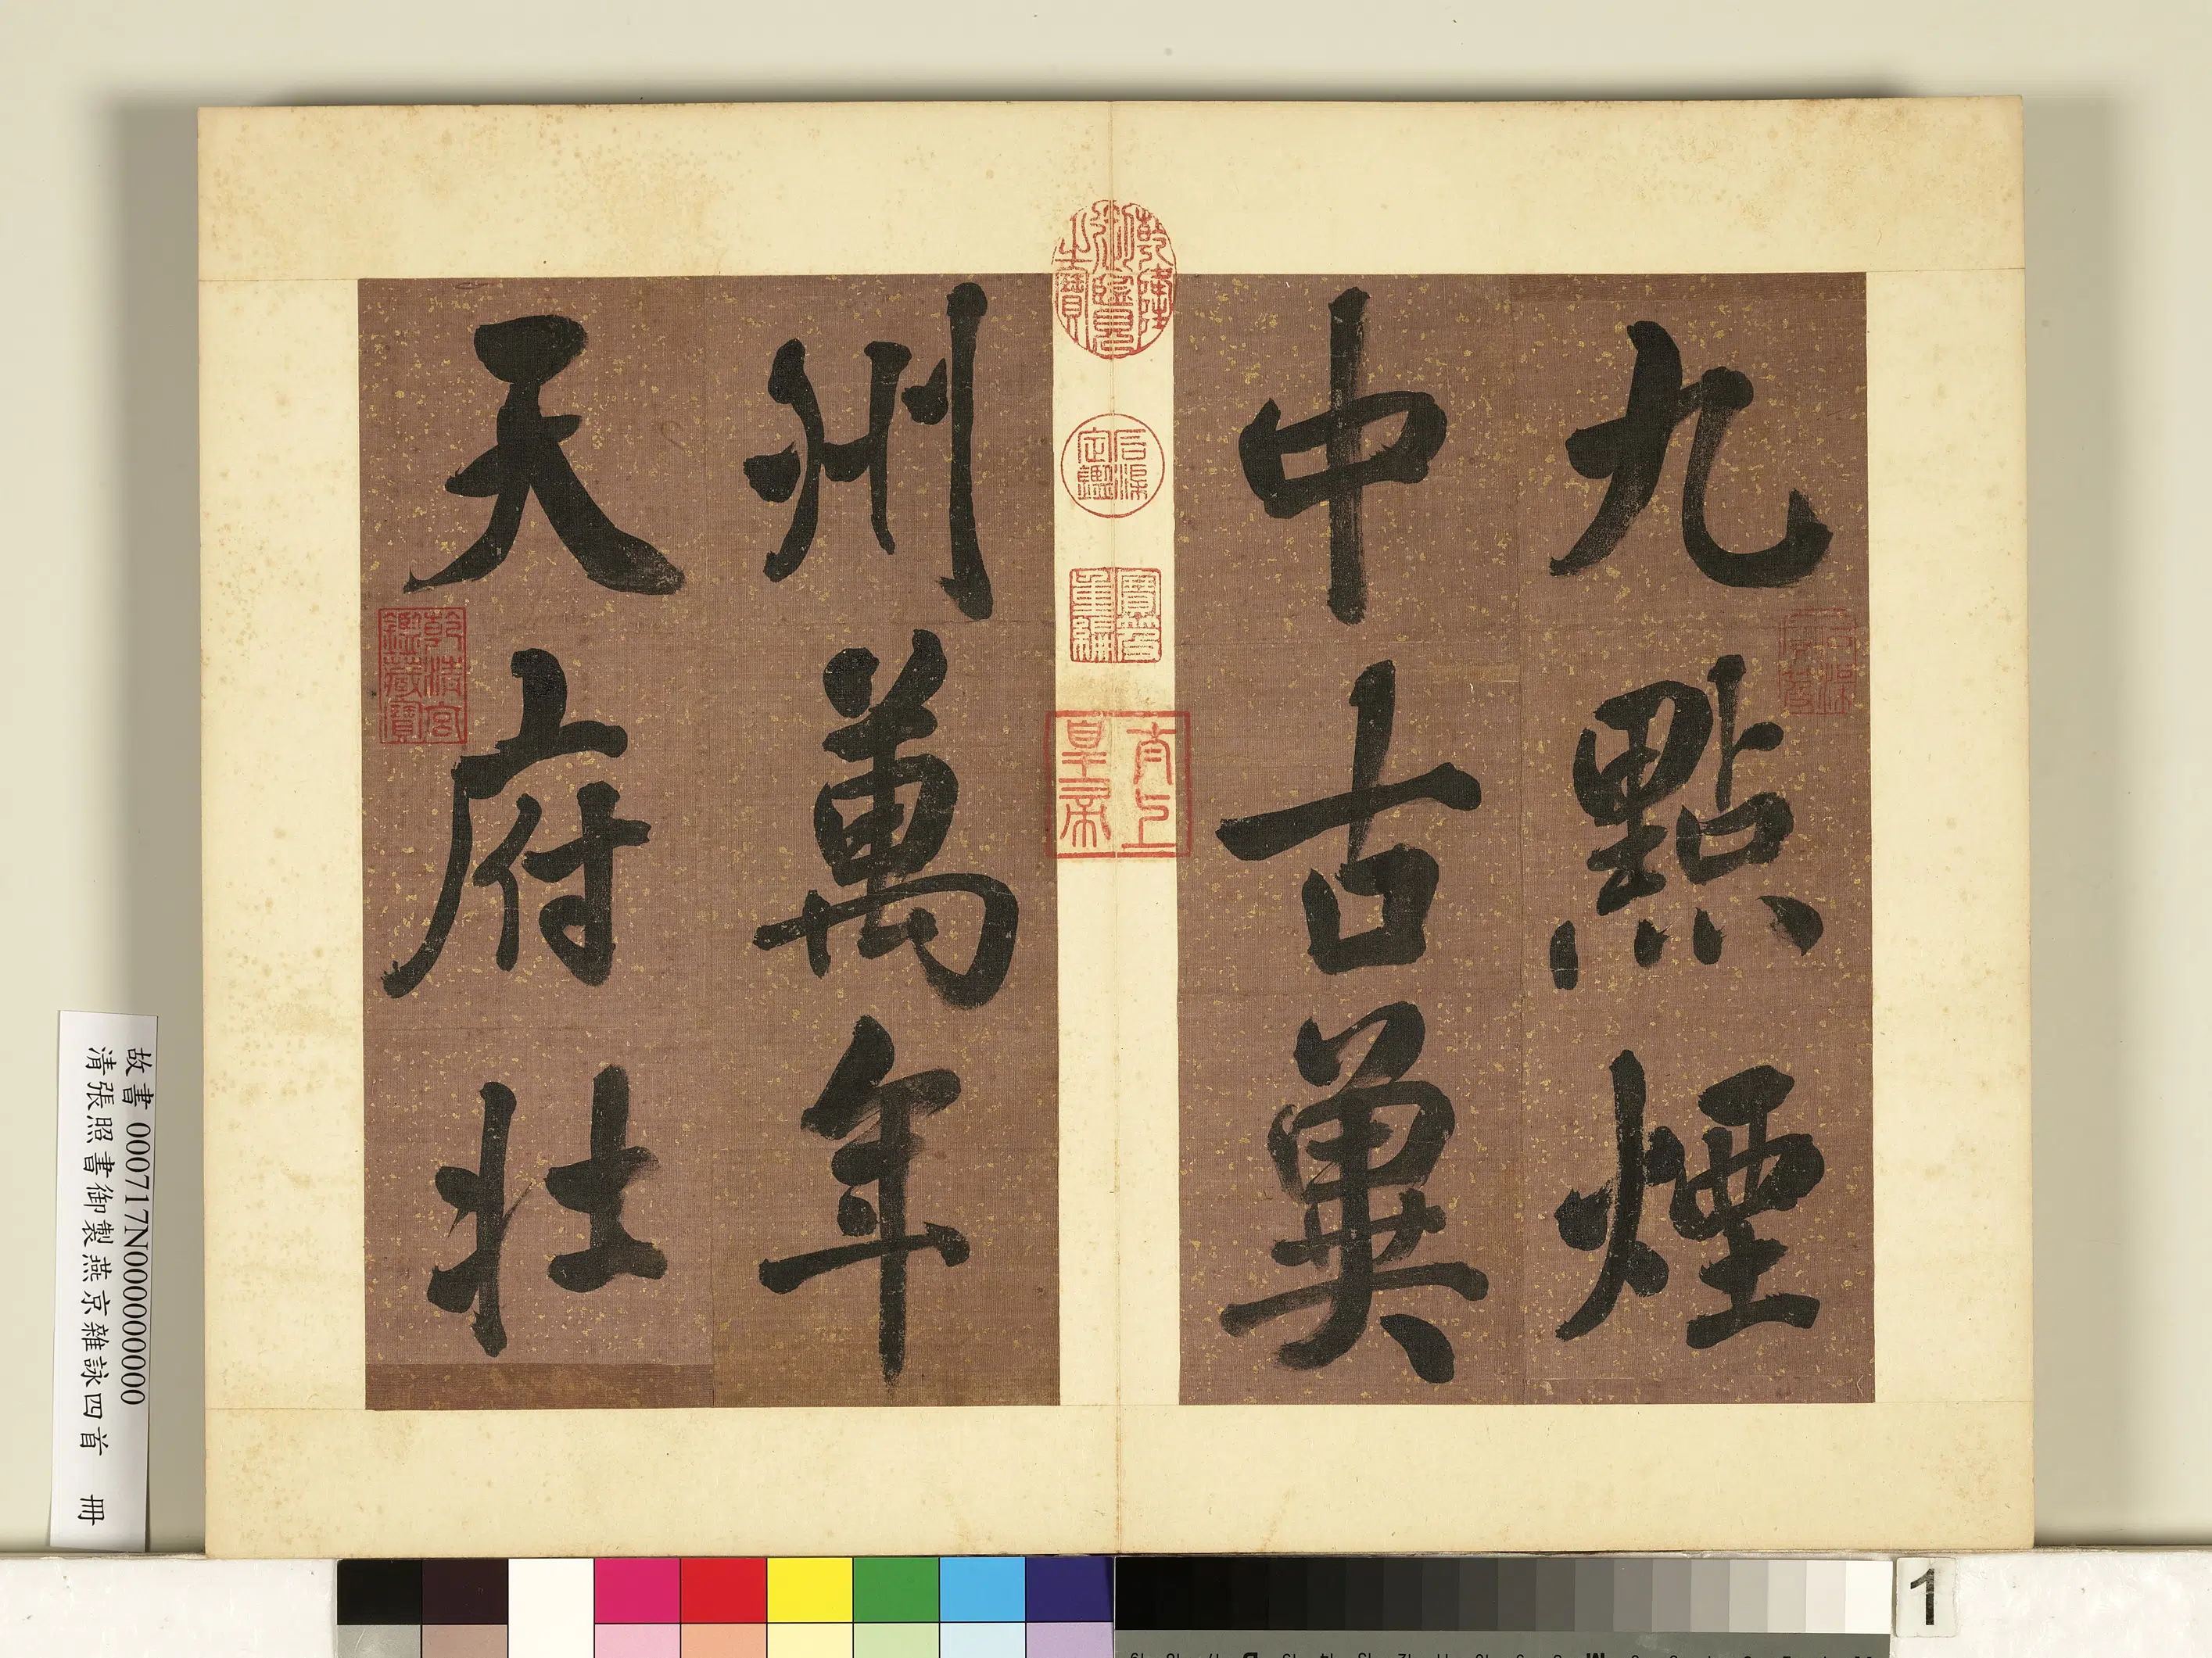 九點煙
中古冀
州萬年
天府壯
乾隆御覽之寶
石渠定鑑
寶笈重編
太上皇帝
石渠寶笈
乾清宮鑑藏寶
故書 000717N000000000
清張照書御製燕京雜詠四首 冊
1